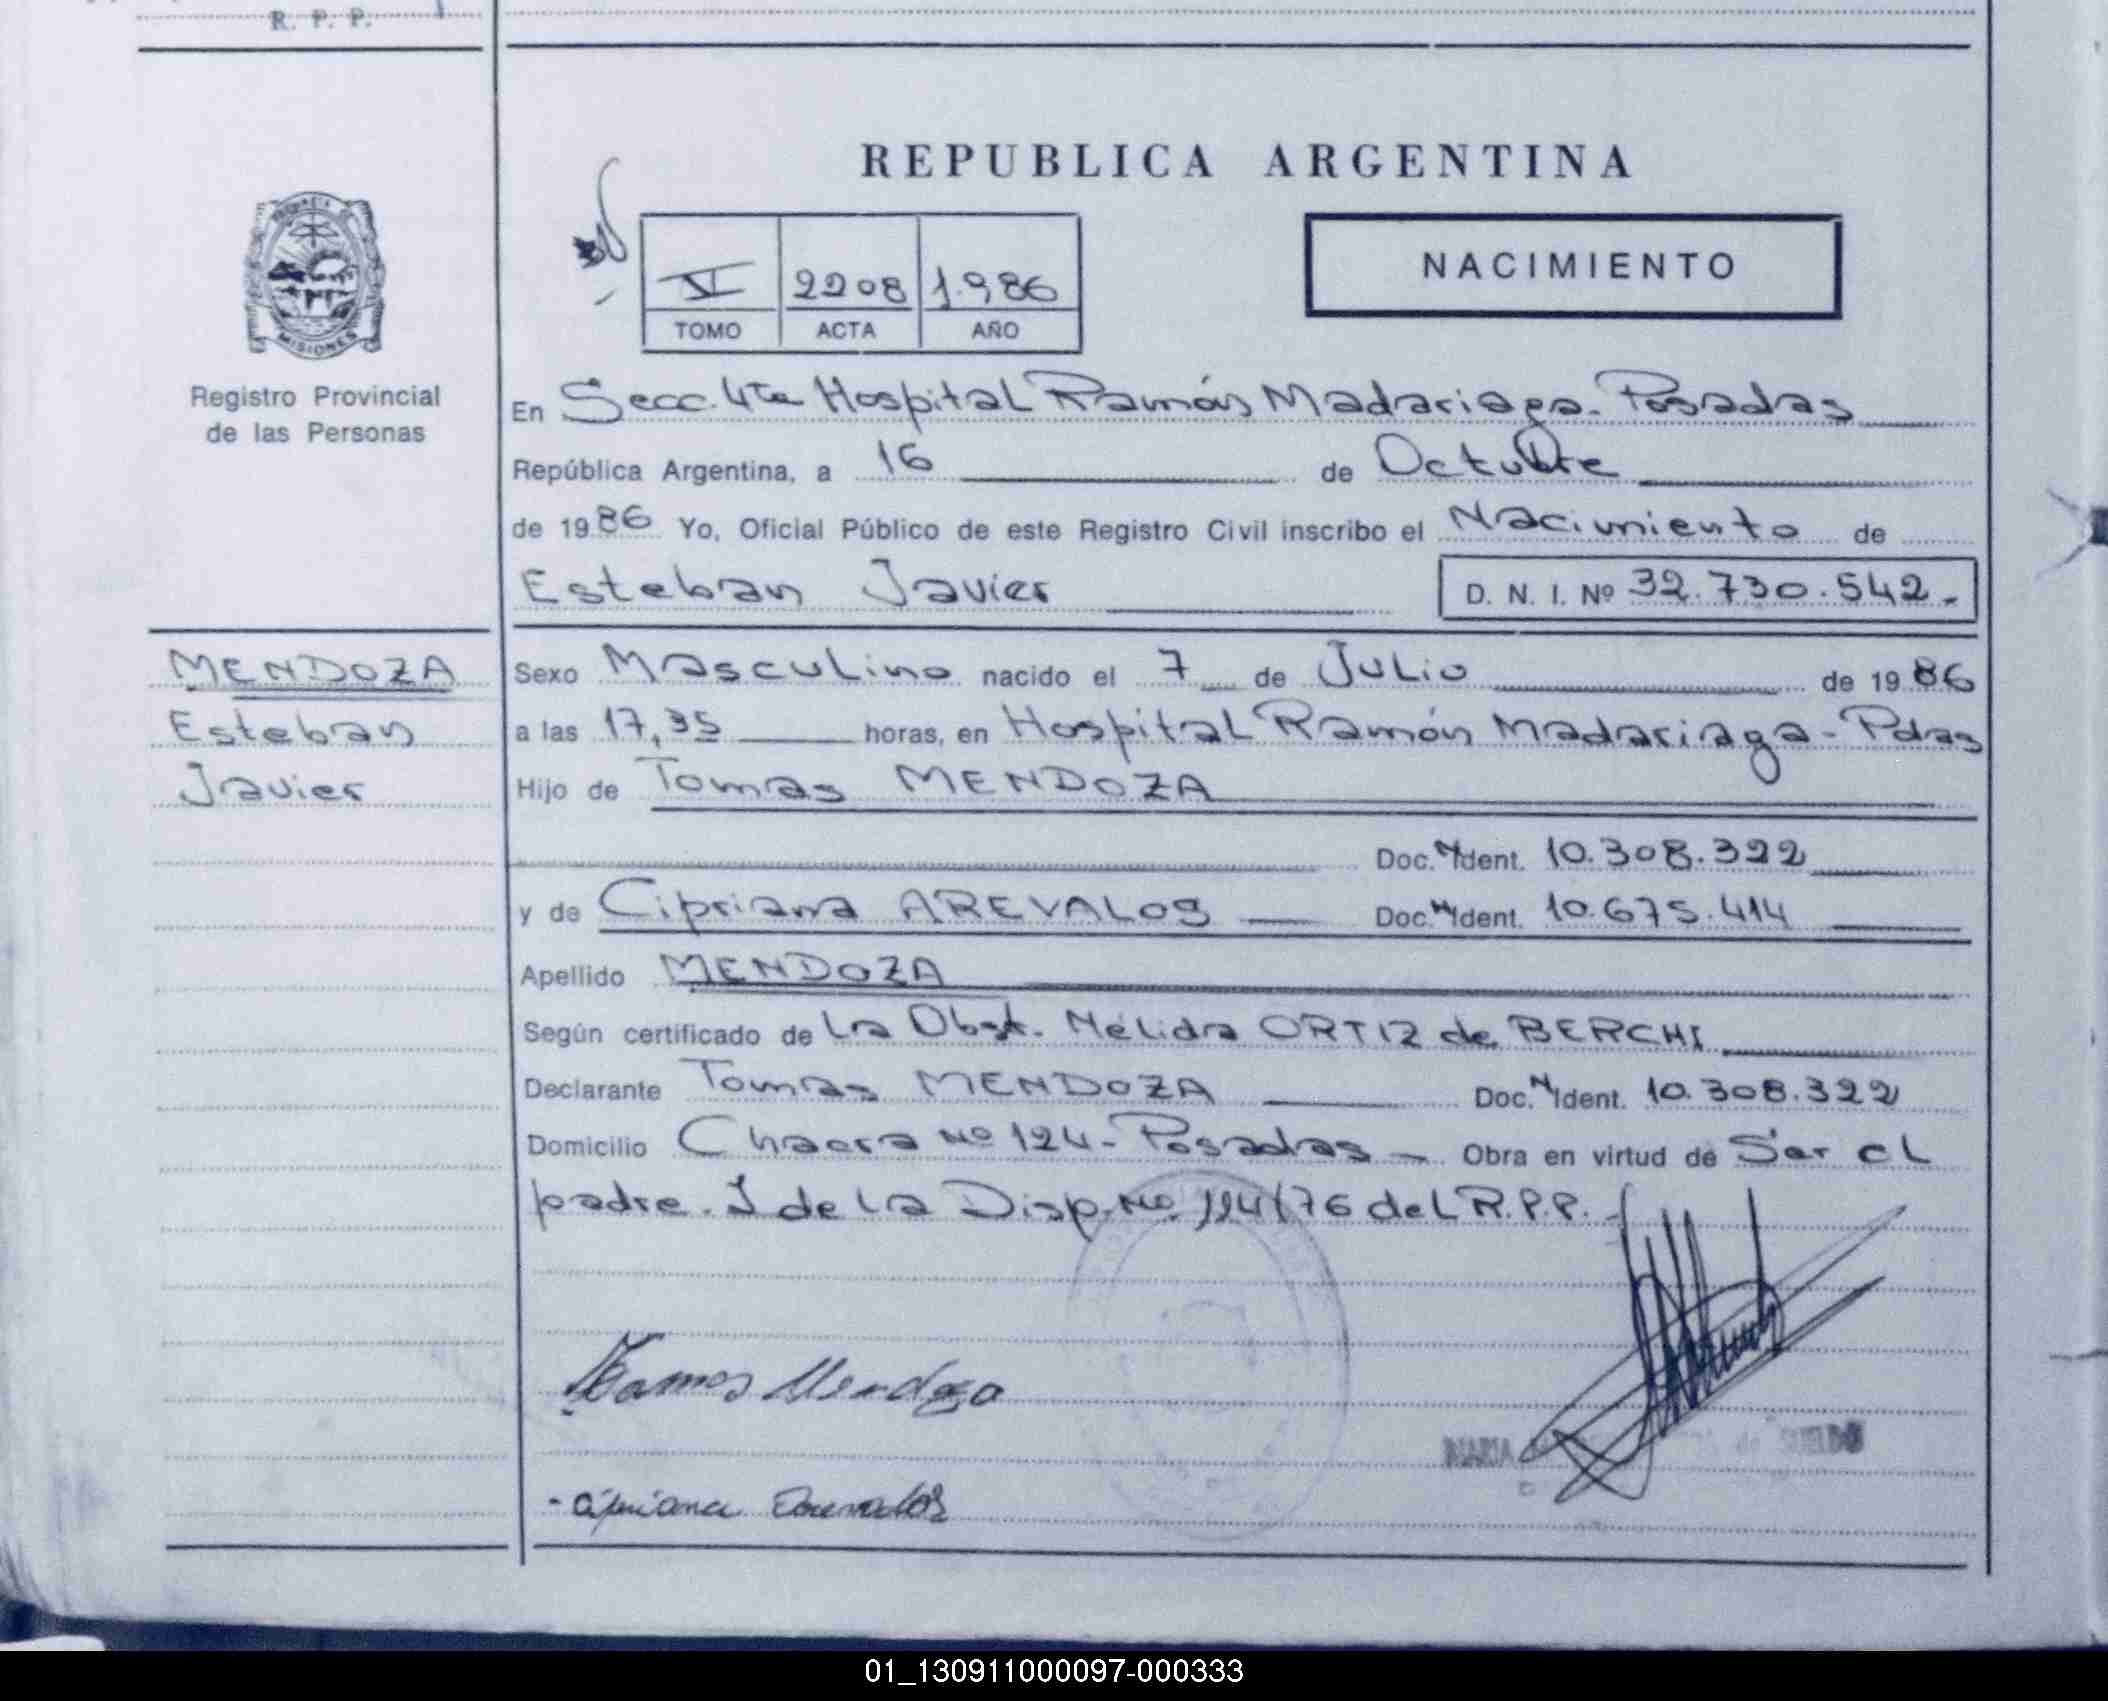 R. P. P.
REPUBLICA ARGENTINA
VI 2208 1.986
TOMO ACTA AÑO
NACIMIENTO
MISIONES
Registro Provincial
de las Personas
En Secc. 4ta Hospital Ramón Madariaga. Posadas
República Argentina, a 16 de Octubre
de 1986 Yo, Oficial Público de este Registro Civil inscribo el Nacimiento de
Esteban Javier D. N. I. Nº 32.730.542.-
MENDOZA
Esteban
Javier
Sexo Masculino nacido el 7 de Julio de 1986
a las 17,35 horas, en Hospital Ramón Madariaga - Pdas
Hijo de Tomas MENDOZA
Doc. N Ident. 10.308.322
y de Cipriana AREVALOS Doc. N Ident. 10.675.414
Apellido MENDOZA
Según certificado de La Obst. Nélida ORTIZ de BERCHI
Declarante Tomas MENDOZA Doc. N Ident. 10.308.322
Domicilio Chacra Nº 124 - Posadas - Obra en virtud de Ser el
padre. I de la Disp. Nº. 114/76 del R.P.P.
Tomas Mendoza
MARIA de SUELDO
- Cipriana Arevalos
01_130911000097-000333